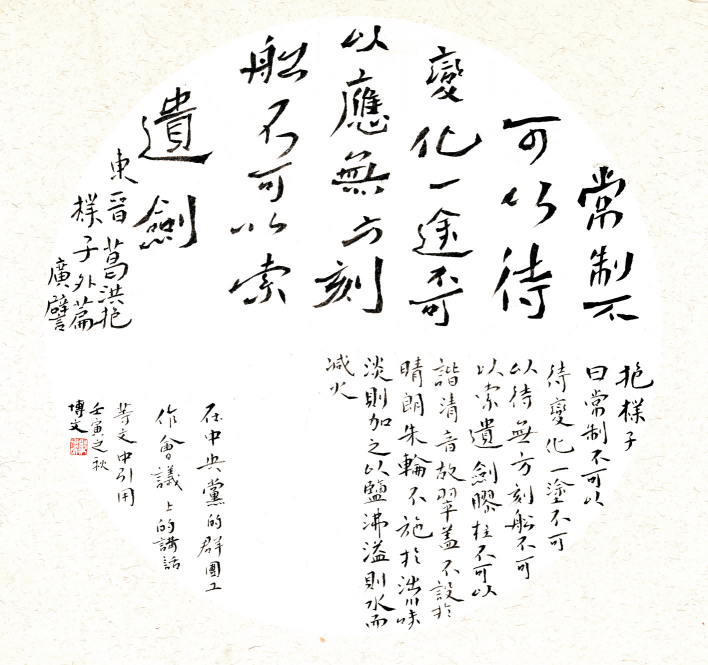 常制不
可以待
變化一途不可
以應無方刻
船不可以索
遺劍
東晉葛洪抱
樸子外篇
廣譬
抱樸子
曰常制不可以
待變化一塗不可
以待無方刻船不可
以索遺劍膠柱不可以
諧清音故翠蓋不設於
晴朗朱輪不施於涉川味
淡則加之以鹽沸溢則水而
减火
在中央黨的群團工
作會議上的講話
等文中引用
壬寅之秋
博文